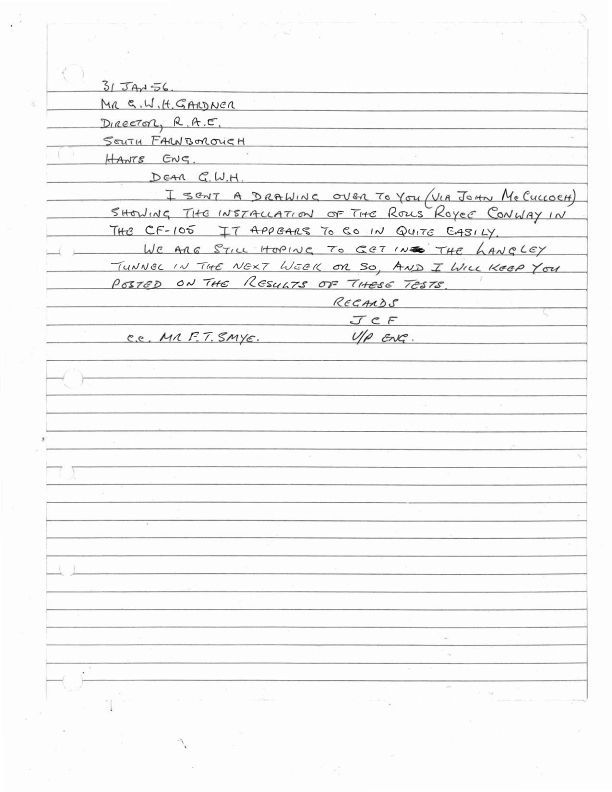 31 JAN-56.
MR G.W.H. GARDNER
DIRECTOR, R.A.E.
SOUTH FARNBOROUGH
HANTS ENG.
DEAR G.W.H.
I SENT A DRAWING OVER TO YOU (VIA JOHN McCULLOCH)
SHOWING THE INSTALLATION OF THE ROLLS ROYCE CONWAY IN
THE CF-105 IT APPEARS TO GO IN QUITE EASILY.
WE ARE STILL HOPING TO GET IN THE LANGLEY
TUNNEL IN THE NEXT WEEK OR SO, AND I WILL KEEP YOU
POSTED ON THE RESULTS OF THESE TESTS.
REGARDS
JCF
c.c. MR F.T. SMYE. V/P ENG.